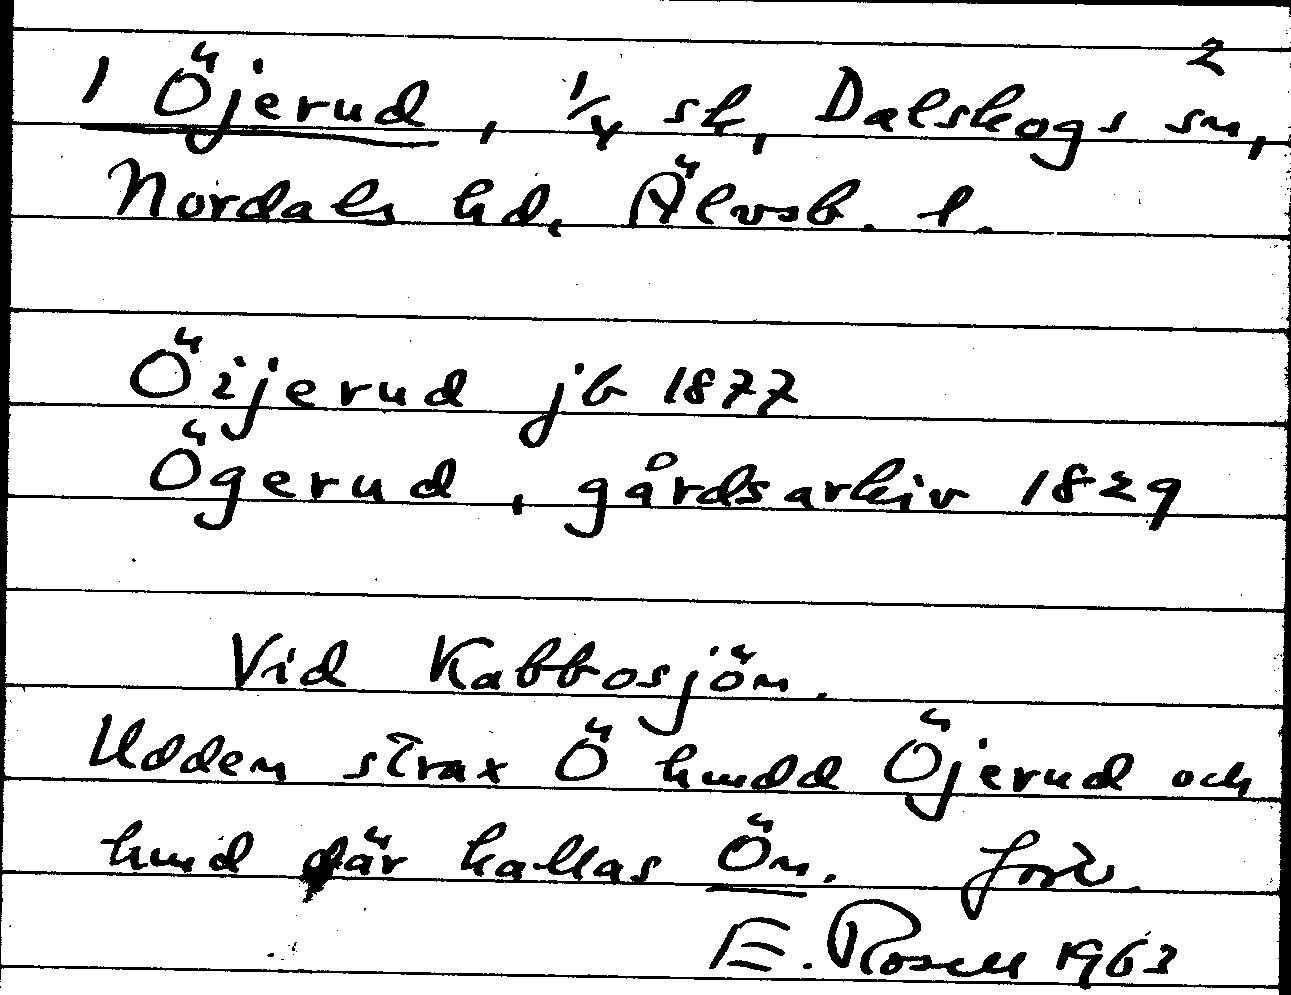 2
1 Öjerud, 1/4 sk, Dalskogs sn,
Nordals hd, Älvsb. l.
Öijerud jb 1877
Ögerud, gårdsarkiv 1829
Vid Kabbosjön.
Udden strax Ö hmdd Öjerud och
hmd där kallas Ön. forts.
E. Rosell 1963